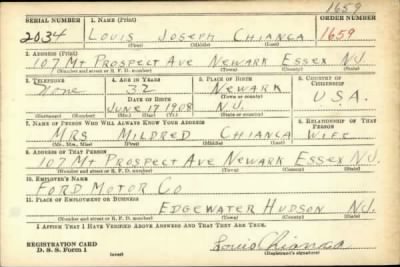 1659
SERIAL NUMBER 1. NAME (Print) ORDER NUMBER
2034 LOUIS JOSEPH CHIANCA 1659
(First) (Middle) (Last)
2. ADDRESS (Print)
107 MT PROSPECT AVE NEWARK ESSEX NJ.
(Number and street or R. F. D. number) (Town) (County) (State)
3. TELEPHONE 4. AGE IN YEARS 5. PLACE OF BIRTH 6. COUNTRY OF CITIZENSHIP
None 32 NEWARK
DATE OF BIRTH (Town or county)
JUNE 17 1908 N.J. U.S.A.
(Exchange) (Number) (Mo.) (Day) (Yr.) (State or country)
7. NAME OF PERSON WHO WILL ALWAYS KNOW YOUR ADDRESS 8. RELATIONSHIP OF THAT PERSON
MRS MILDRED CHIANCA WIFE
(Mr., Mrs., Miss) (First) (Middle) (Last)
9. ADDRESS OF THAT PERSON
107 MT PROSPECT AVE NEWARK ESSEX N.J.
(Number and street or R. F. D. number) (Town) (County) (State)
10. EMPLOYER'S NAME
FORD MOTOR CO
11. PLACE OF EMPLOYMENT OR BUSINESS
EDGEWATER HUDSON N.J.
(Number and street or R. F. D. number) (Town) (County) (State)
I AFFIRM THAT I HAVE VERIFIED ABOVE ANSWERS AND THAT THEY ARE TRUE.
REGISTRATION CARD Louis Chianca
D. S. S. Form 1 (over) (Registrant's signature)